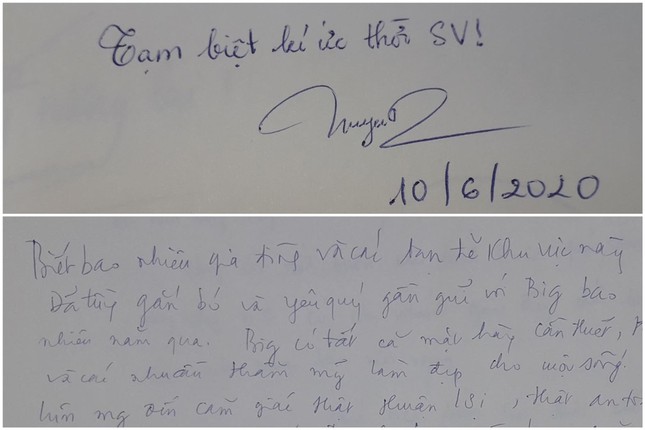 Tạm biệt kí ức thời SV!
10/6/2020
Biết bao nhiêu gia đình và các ban tể khu vực này
Đã từng gắn bó và yêu quý gần gũi với Big bao
nhiêu năm qua. Big có tất cả mặt hàng cần thiết,
và các nhu cầu thẩm mỹ làm đẹp cho cuộc sống.
cảm giác thật thuận lợi, thật an to